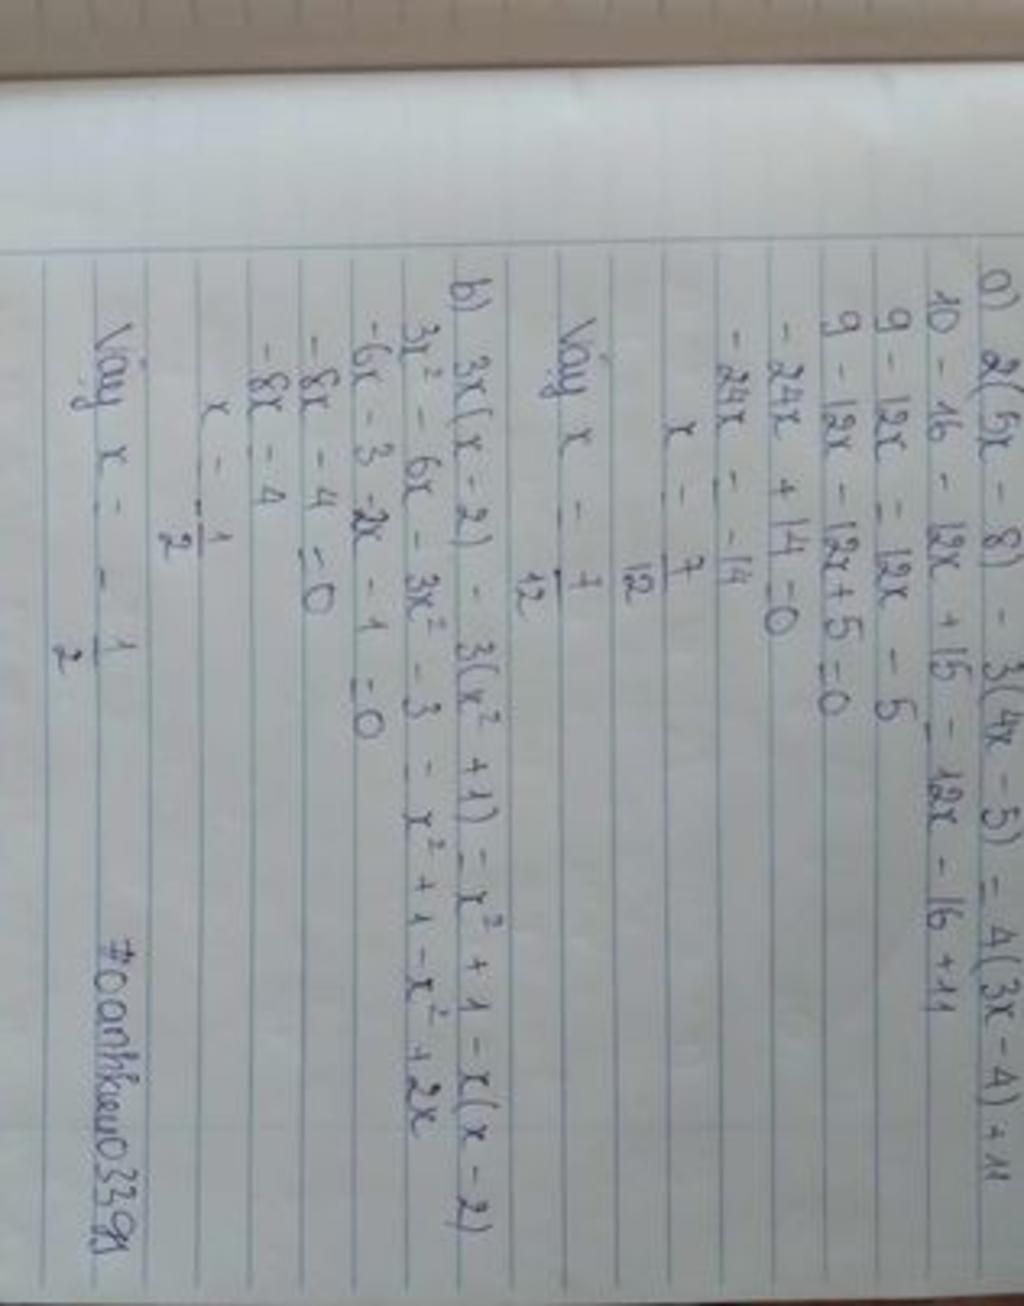 a) 2(5x - 8) - 3(4x - 5) = 4(3x - 4) + 11
10 - 16 - 12x + 15 = 12x - 16 + 11
9 - 12x = 12x - 5
9 - 12x - 12x + 5 = 0
- 24x + 14 = 0
- 24x = - 14
x = 7/12
Vậy x = 7/12
b) 3x(x - 2) - 3(x² + 1) = x² + 1 - x(x - 2)
3x² - 6x - 3x² - 3 = x² + 1 - x² + 2x
-6x - 3 - 2x - 1 = 0
- 8x - 4 = 0
- 8x = 4
x = - 1/2
Vậy x = - 1/2
#oanhkieu03391